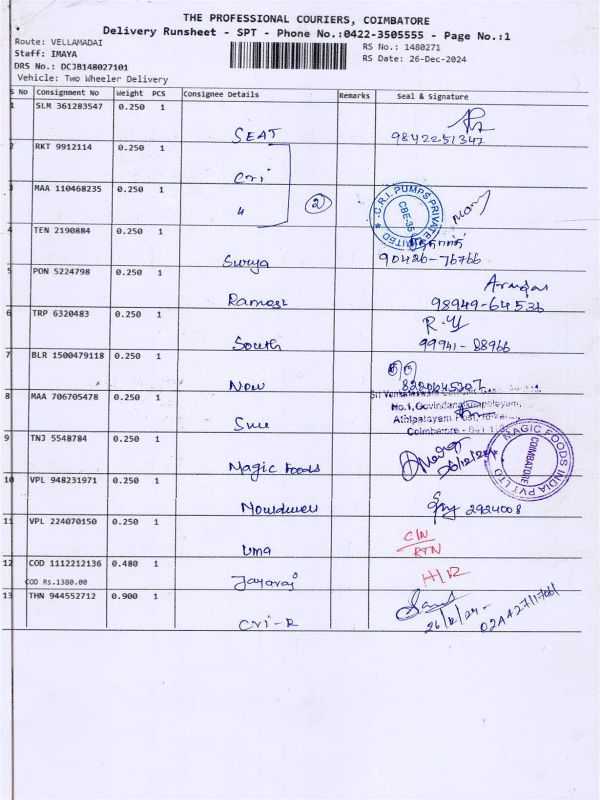 THE PROFESSIONAL COURIERS, COIMBATORE
Delivery Runsheet - SPT - Phone No.:0422-3505555 - Page No.:1
Route: VELLAMADAI
Staff: IMAYA
DRS No.: DCJB148027101
Vehicle: Two Wheeler Delivery
RS No.: 1480271
RS Date: 26-Dec-2024
S No Consignment No Weight PCS Consignee Details Remarks Seal & Signature
1 SLM 361283547 0.250 1 SEAT 9842251347
2 RKT 9912114 0.250 1 Cri
3 MAA 110468235 0.250 1 " 2
C.R.I. PUMPS PRIVATE LIMITED
CBE-35
4 TEN 2190884 0.250 1 Surya 90426-76766
5 PON 5224798 0.250 1 Ramesh 98949-64536
6 TRP 6320483 0.250 1 South 99941-88966
7 BLR 1500479118 0.250 1 Now 8220645307
8 MAA 706705478 0.250 1 Sree
No.1, Govindanaickenpalayam,
Athipalayam Post,
Coimbatore - 641
9 TNJ 5548784 0.250 1 Magic Foods 26/12/24
MAGIC FOODS INDIA PVT LTD
COIMBATORE
10 VPL 948231971 0.250 1 2924008
11 VPL 224070150 0.250 1 Uma RTN
12 COD 1112212136 0.480 1 Jayaraj
COD Rs.1380.00
13 THN 944552712 0.900 1 Cri-R 26/12/24